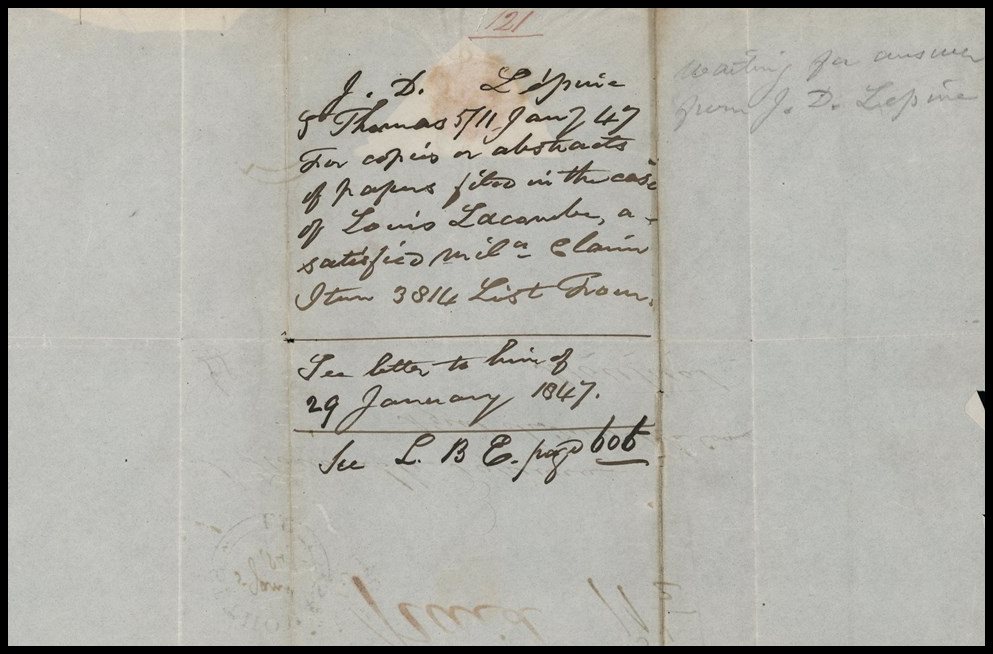 121
J. D. Lépine
St Thomas 5/11 Jany 47
For copies or abstracts
of papers filed in the case
of Louis Lacombe, a
satisfied mil.a Claim
Item 3814 List From.
See letter to him of
29 January 1847.
See L. B E. page 606
Waiting for answer
from J. D. Lepine